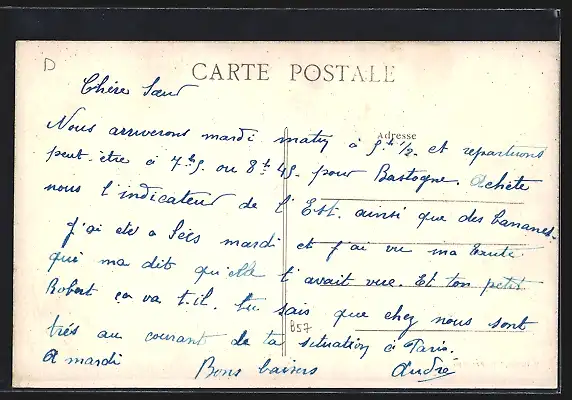 D
CARTE POSTALE
Chère Sœur
Adresse
Nous arriverons mardi matin à 5h 1/2. et repartirons
peut-être à 7h5. ou 8h45. pour Bastogne. Achète
nous l'indicateur de l'Est. ainsi que des bananes.
J'ai été à mardi et j'ai vu ma tante
qui m'a dit qu'elle t'avait vue. Et ton petit
Robert ça va t-il. tu sais que chez nous sont
très au courant de ta situation à Paris.
A mardi Bons baisers André
B57